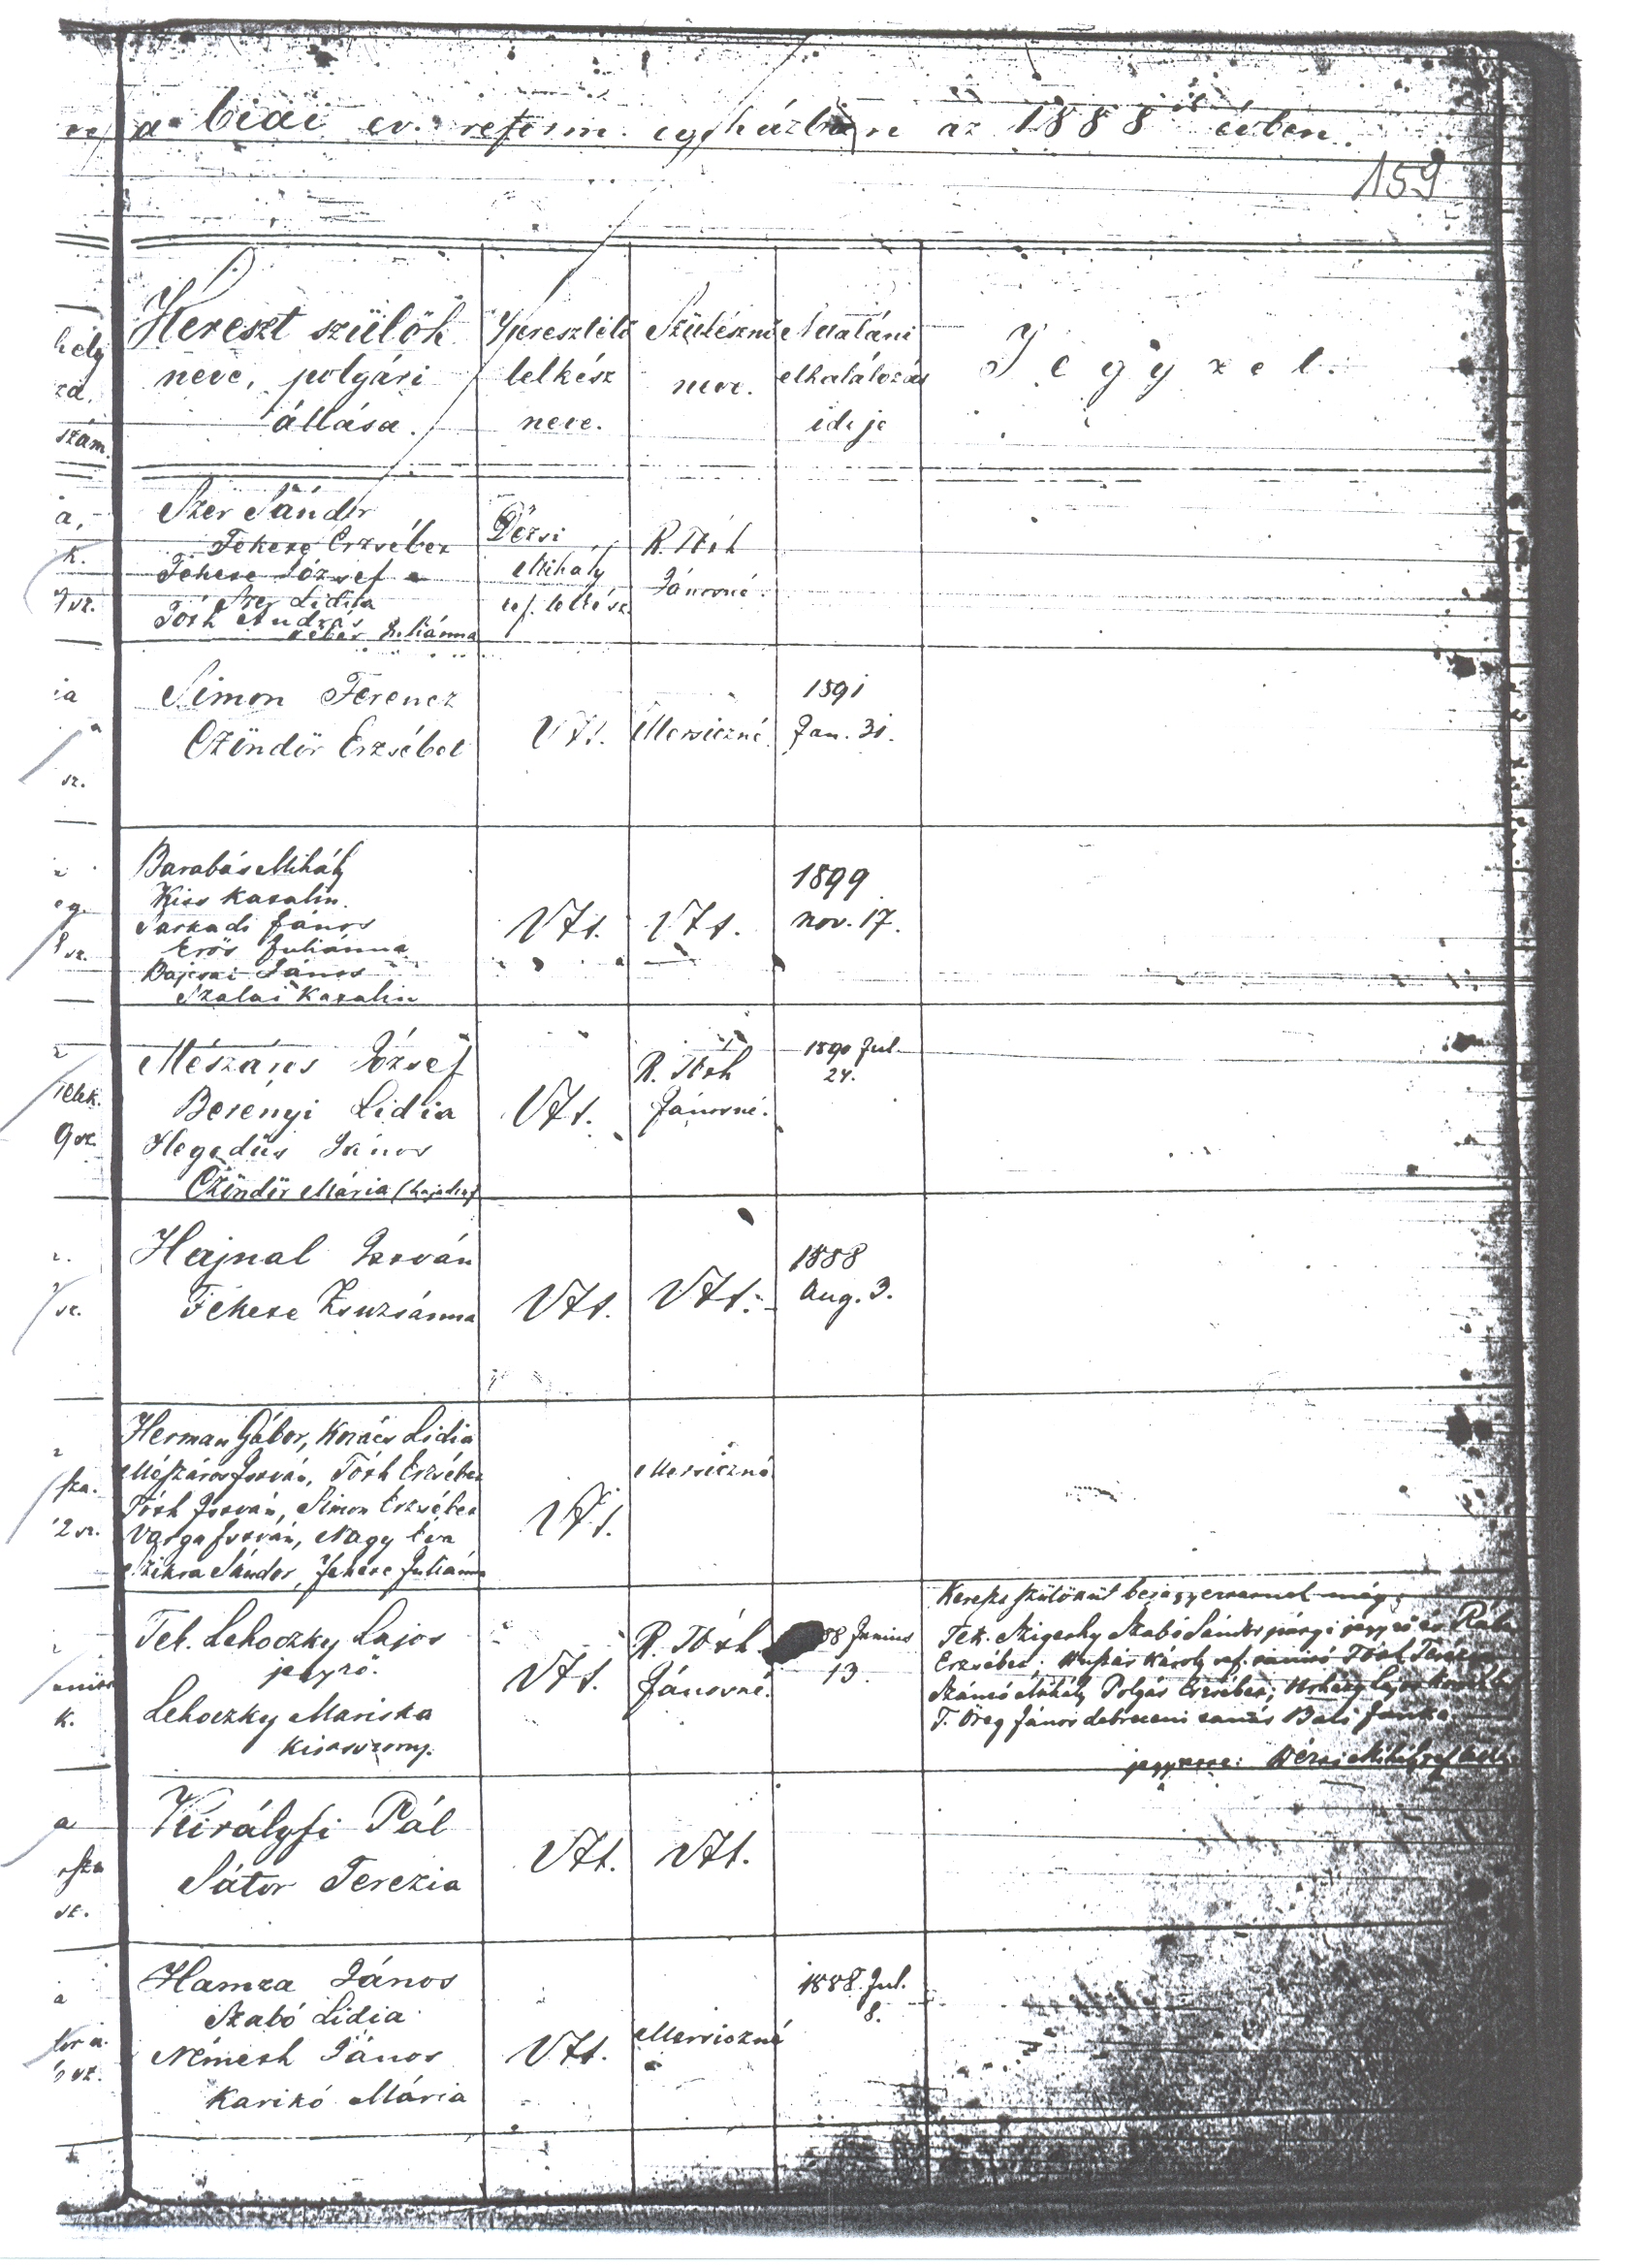 a biai ev. reform. egyházban az 1888 ik évben
159
hely
szám.
Kereszt szülők
neve, polgári
állása.
Keresztelő
lelkész
neve.
Szülésznő
neve.
Netaláni
elhalálozás
ideje
Jegyzet.
Szer Sándor
Fekete Erzsébet
Fekete József
Szer Lidia
Tóth András
Juliánna
Dézsi
Mihály
ref. lelkész
R. Tóth
Jánosné.
Simon Ferencz
Czöndör Erzsébet
Uft.
Mersiczné
1891
Jan. 31.
Barabás Mihály
Kiss Katalin.
Sarkadi János
Erős Juliánna
Bajcsai János
Szalai Katalin
Uft.
Uft.
1899
nov. 17.
Mészáros József
Berényi Lidia
Hegedűs János
Czöndör Mária
Uft.
R. Tóth
Jánosné.
1890 Jul.
24.
Hajnal István
Fekete Zsuzsánna
Uft.
Uft.
1888
Aug. 3.
Herman Gábor, Kovács Lidia
Mészáros István, Tóth Erzsébet
Tóth István, Simon Erzsébet
Varga István, Nagy Éva
Szikra Sándor, Fekete Juliánna
Uft.
Mersiczné
Tek. Lehoczky Lajos
jegyző.
Lehoczky Mariska
kisasszony.
Uft.
R. Tóth
Jánosné.
88 Junius
13.
Kereszt szülőkül bejegyeztetnek még:
Tek. Szigethy Szabó Sándor járási jegyző és
Erzsébet. Huszár Károly ref. tanító Tóth Terézia
Szántó Mihály Polgár Erzsébet,
T. Öreg János debreczeni tanár Bali Janka
jegyezte: Dézsi Mihály ref lelkész
Királyfi Pál
Sátor Terézia
Uft.
Uft.
Hamza János
Szabó Lidia
Németh János
Karikó Mária
Uft.
Mersiczné
1888. Jul.
8.